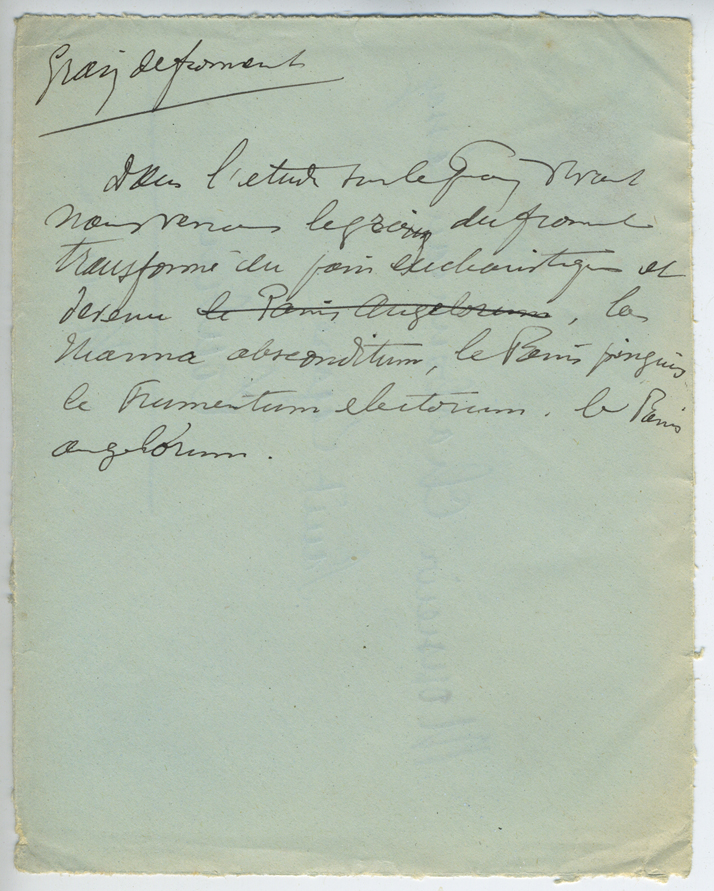 Grain de froment
Dans l'étude sur le Grain vivant
nous verrons le grain du froment
transformé du pain eucharistique et
devenu le Panis Angelorum, la
Manna absconditum, le Panis pinguis
le Frumentum electorum. le Panis
angelorum.